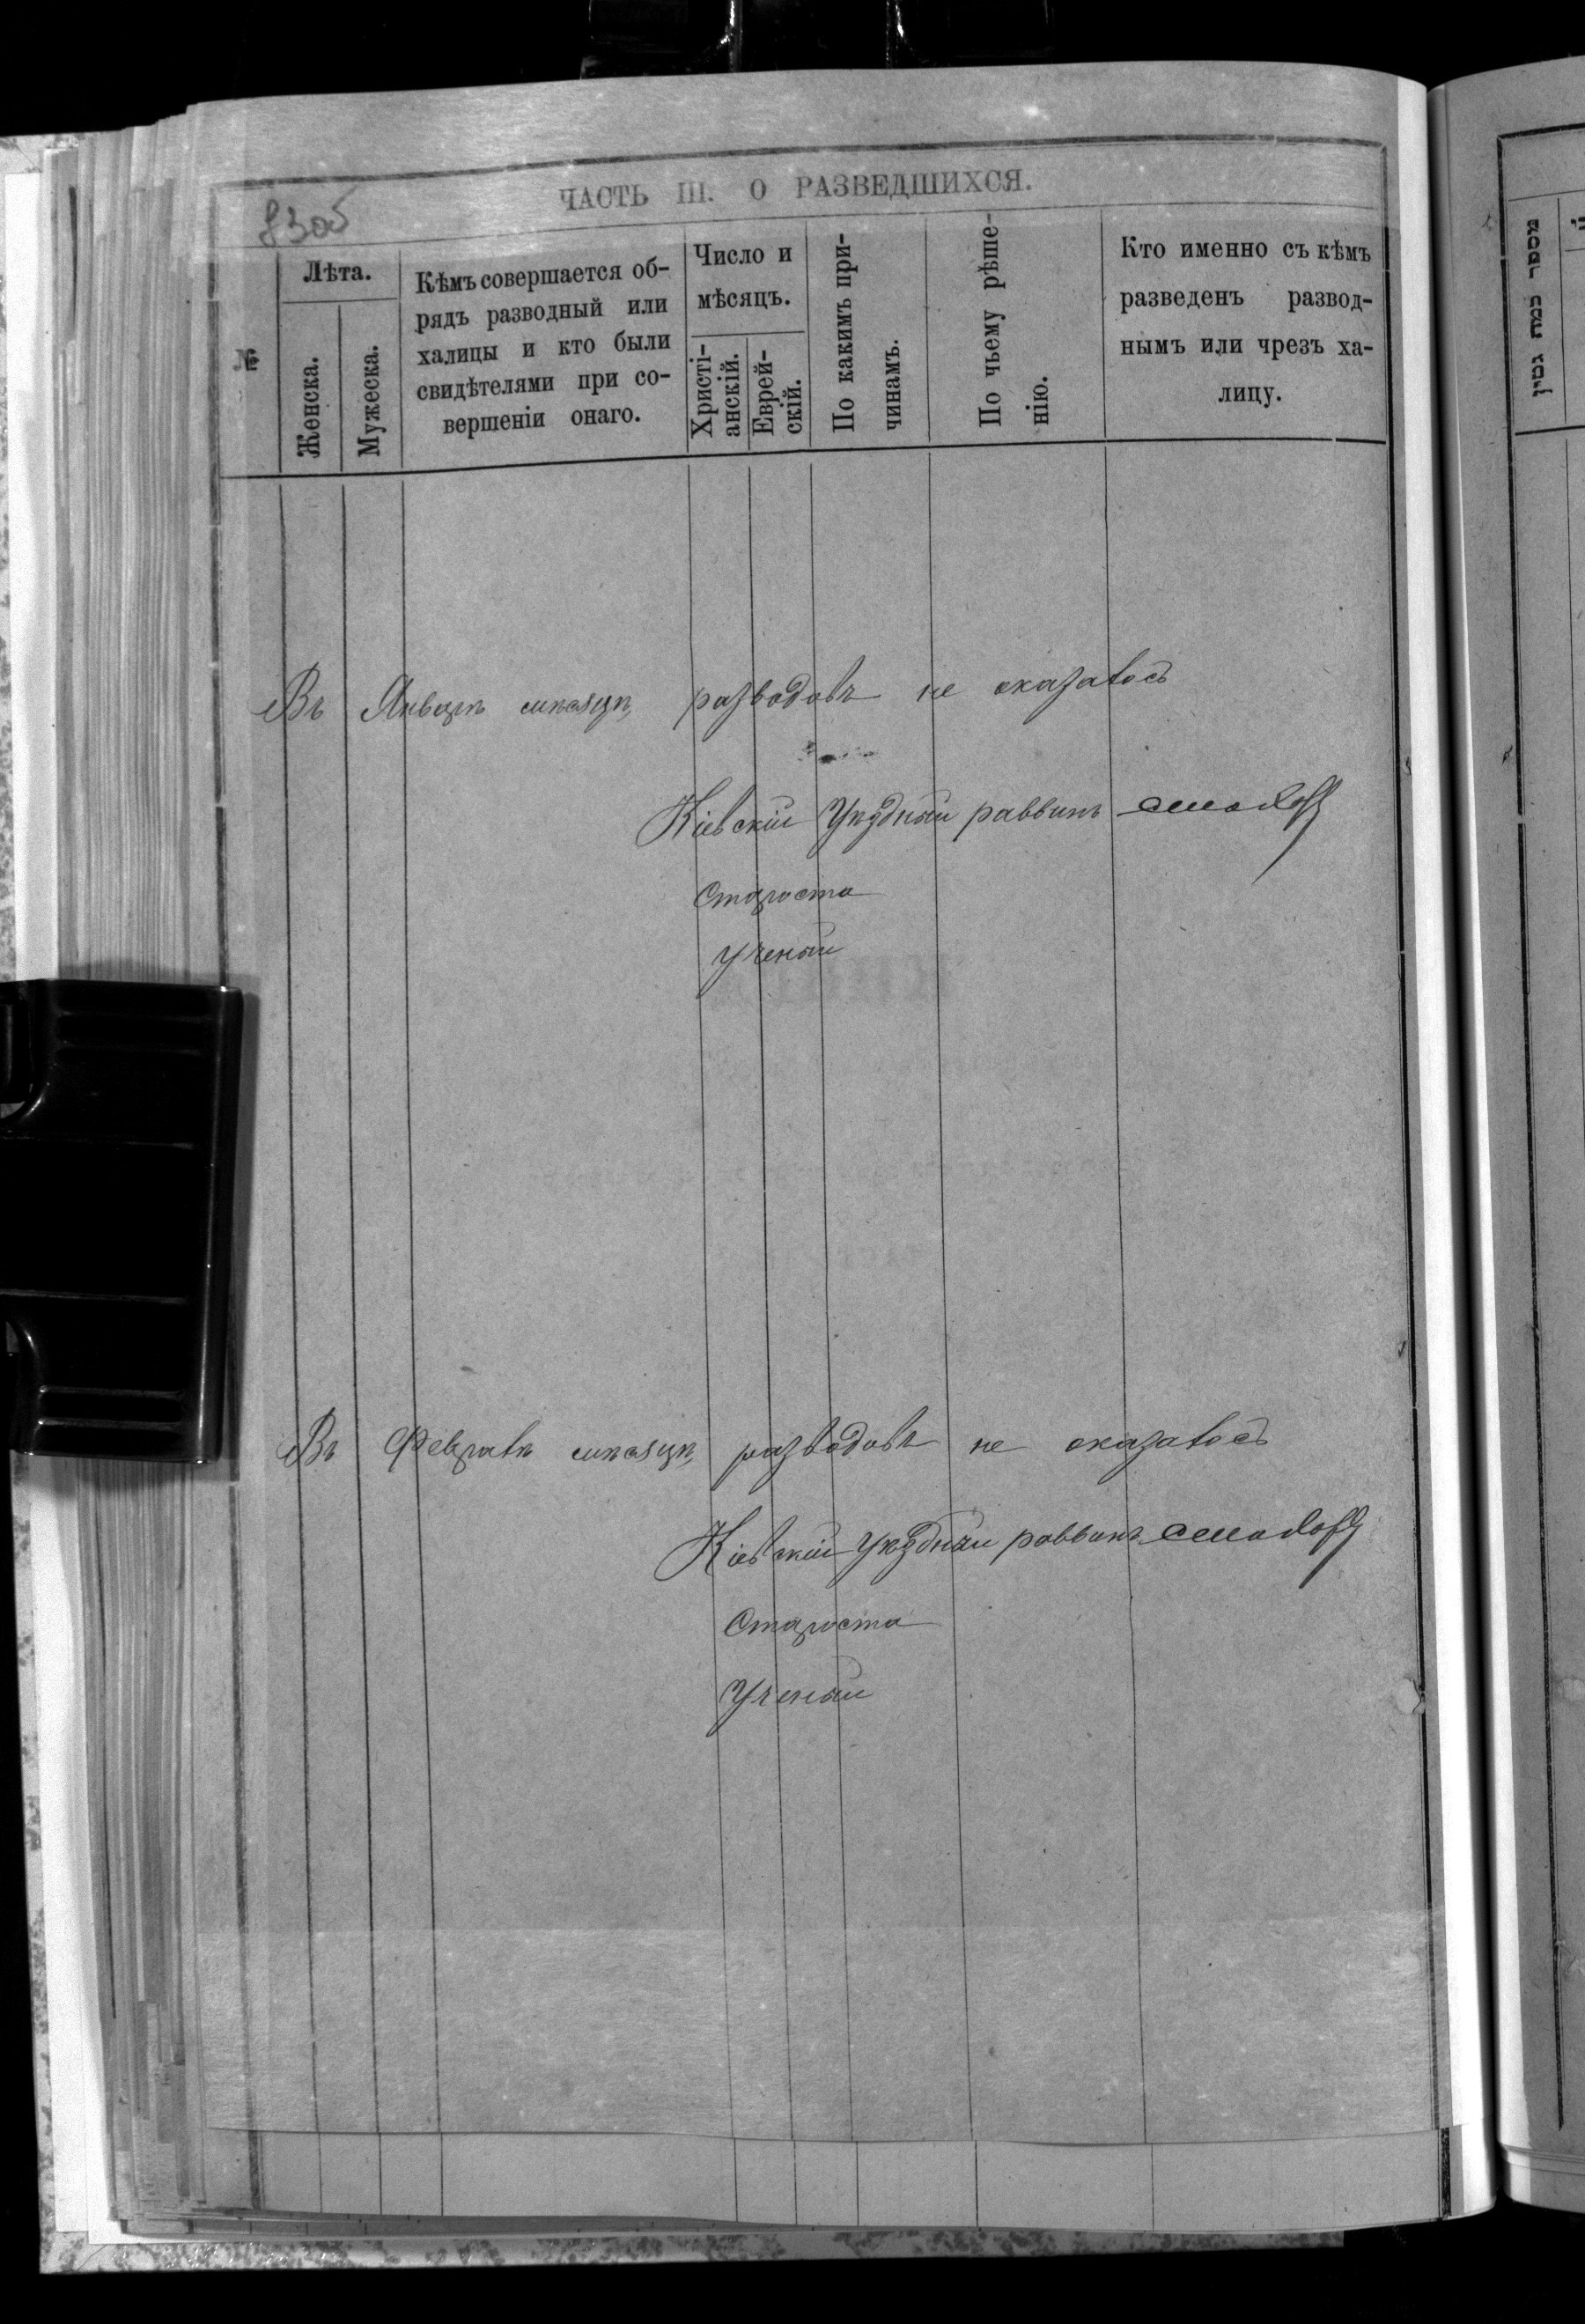 83об
ЧАСТЬ III. О РАЗВЕДШИХСЯ.
№
Лѣта.
Женска.
Мужеска.
Кѣмъ совершается об-
рядъ разводный или
халицы и кто были
свидѣтелями при со-
вершеніи онаго.
Число и
мѣсяцъ.
Христі-
анскій.
Еврей-
скій.
По какимъ при-
чинамъ.
По чьему рѣше-
нію.
Кто именно съ кѣмъ
разведенъ развод-
нымъ или чрезъ ха-
лицу.
Въ Январѣ мѣсяцѣ, разводовъ не оказалось
Кіевскій Уѣздный раввинъ
Староста
Ученый
Въ Февралѣ мѣсяцѣ, разводовъ не оказалось
Кіевскій Уѣздный раввинъ
Староста
Ученый
מספר כמה גטין